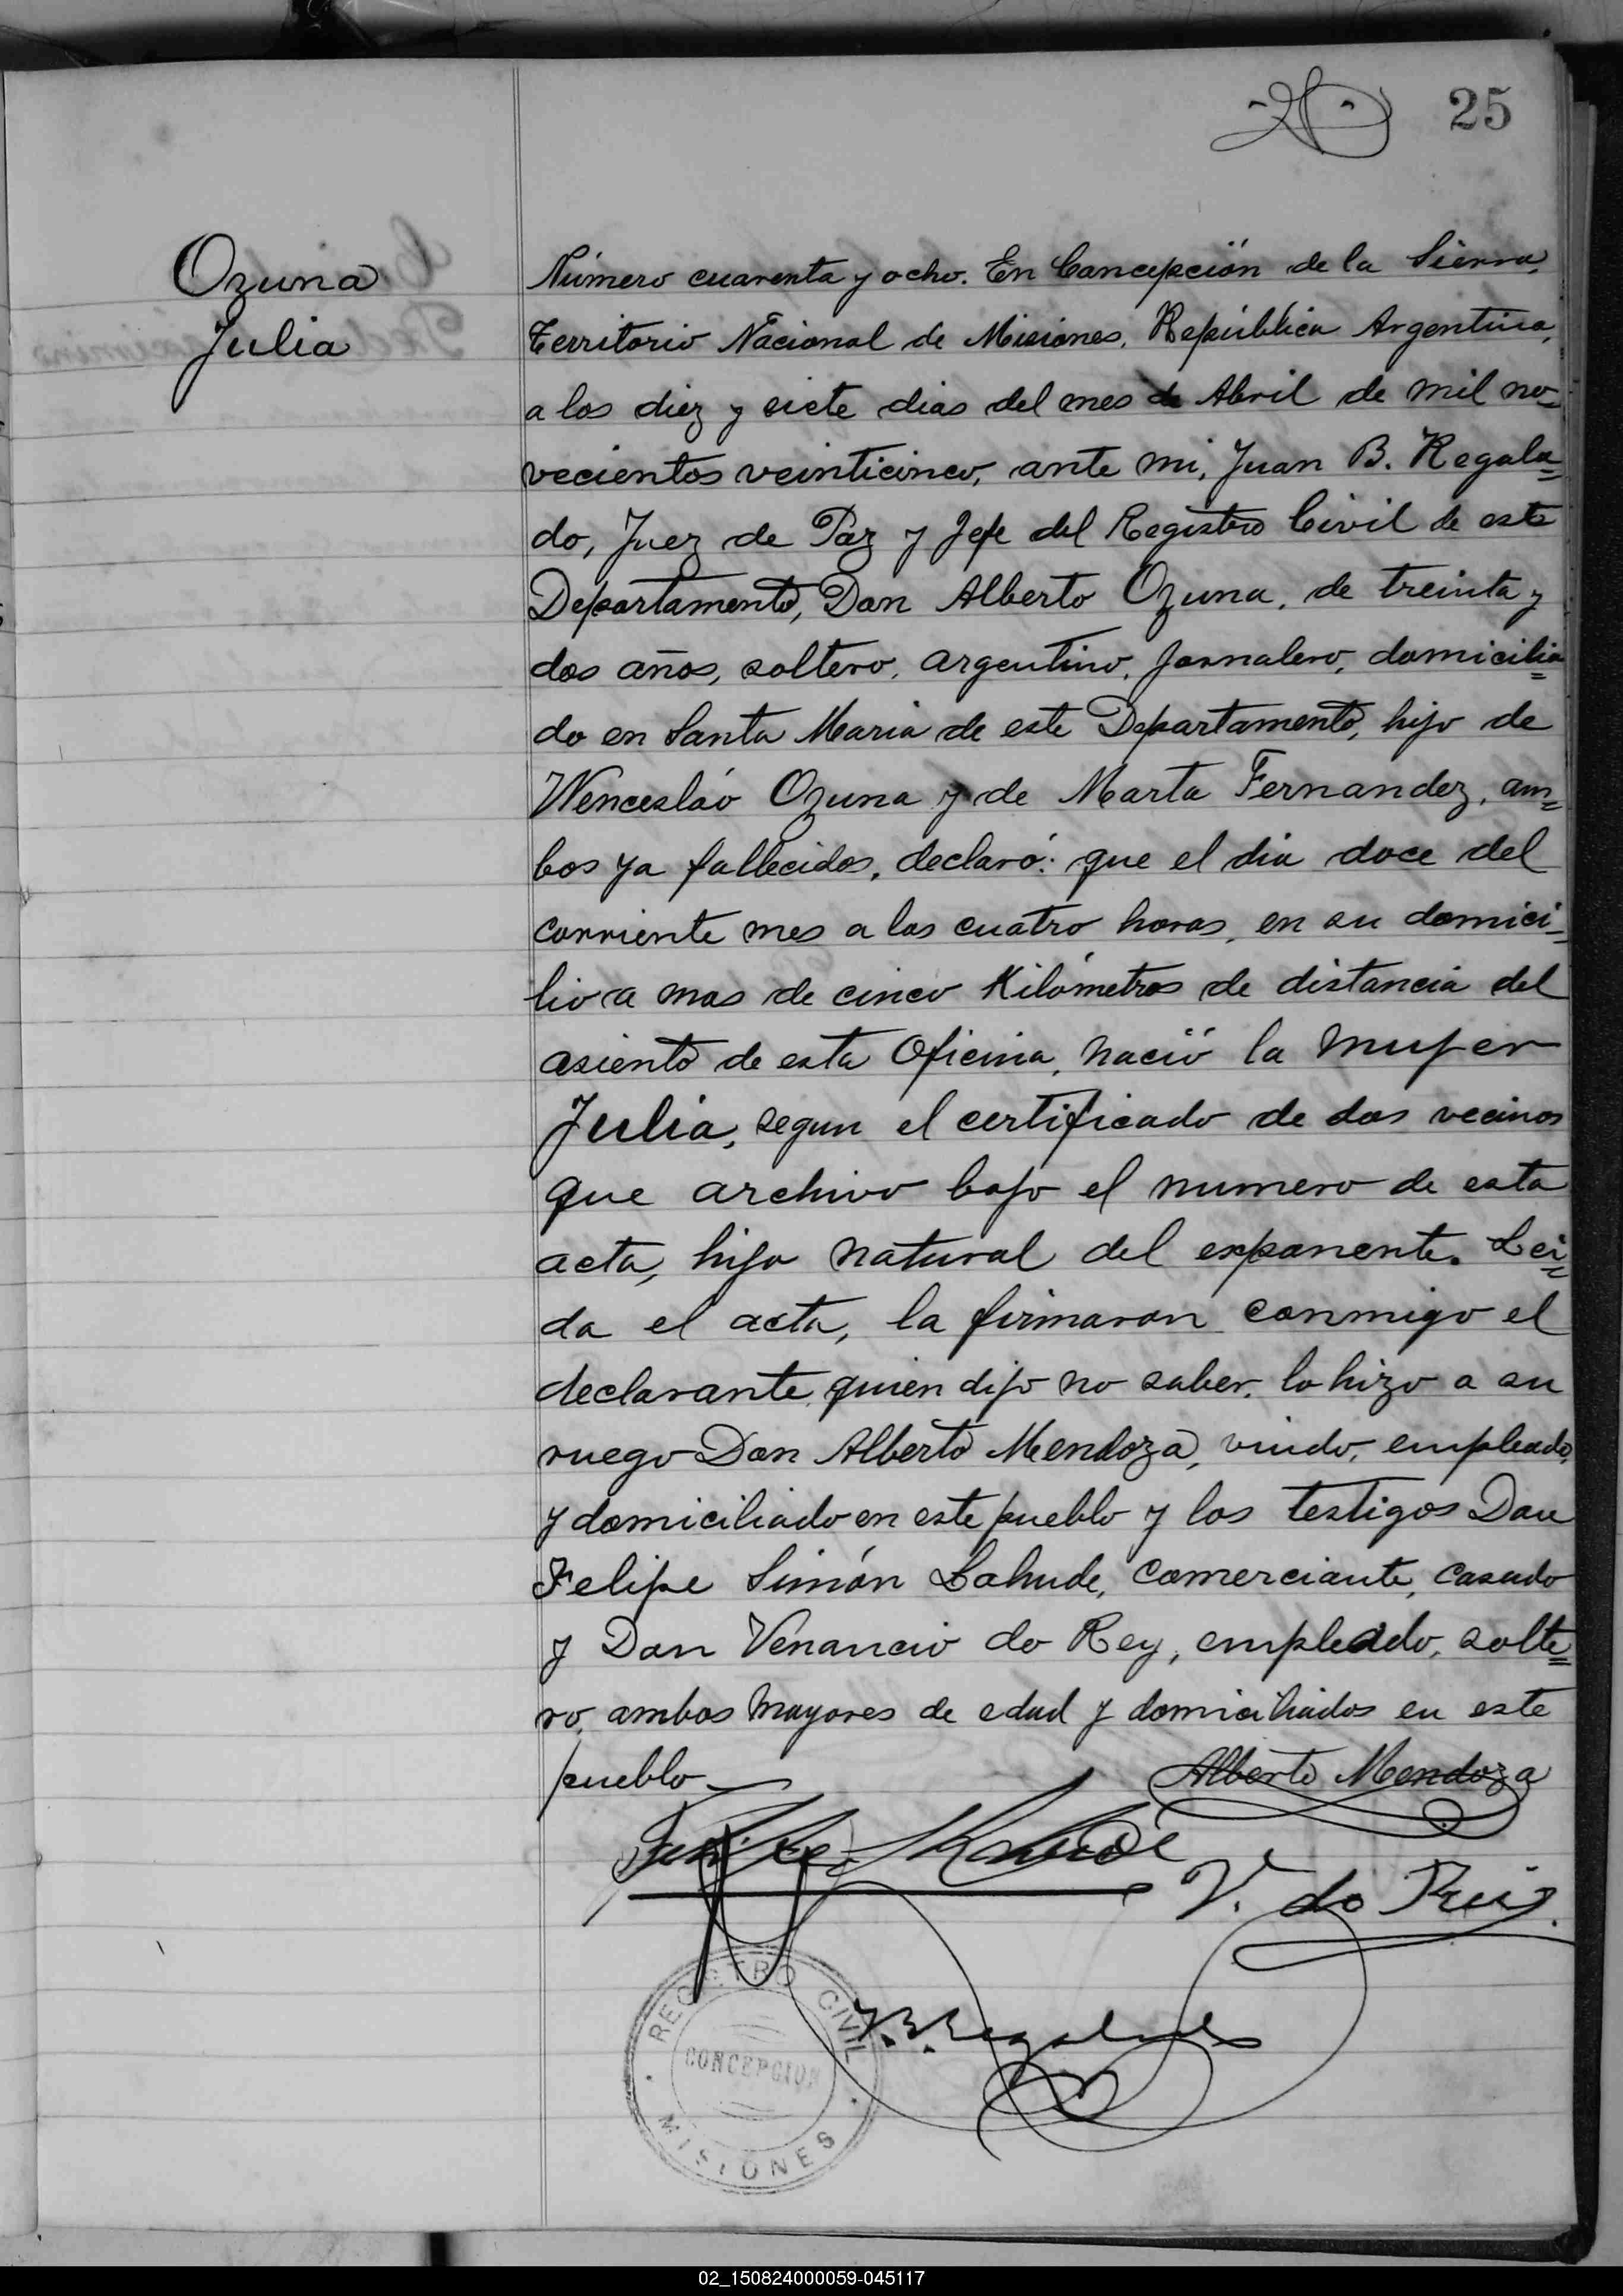 25
Ozuna
Julia
Número cuarenta y ocho. En Concepción de la Sierra,
Territorio Nacional de Misiones, República Argentina,
a los diez y siete dias del mes de Abril de mil no=
vecientos veinticinco, ante mi, Juan B. Regala=
do, Juez de Paz y Jefe del Registro Civil de este
Departamento, Don Alberto Ozuna, de treinta y
dos años, soltero, argentino, jornalero, domicilia=
do en Santa Maria de este Departamento, hijo de
Wencesláo Ozuna y de Marta Fernandez, am=
bos ya fallecidos, declaró: que el dia doce del
corriente mes a las cuatro horas, en su domici=
lio a mas de cinco Kilómetros de distancia del
asiento de esta Oficina, nació la mujer
Julia, segun el certificado de dos vecinos
que archivo bajo el numero de esta
acta, hija natural del exponente. Lei=
da el acta, la firmaron conmigo el
declarante, quien dijo no saber, lo hizo a su
ruego Don Alberto Mendoza, viudo, empleado,
y domiciliado en este pueblo y los testigos Don
Felipe Simón Lahude, comerciante, casado
y Don Venancio do Rey, empleado, solte=
ro, ambos mayores de edad y domiciliados en este
pueblo
Alberto Mendoza
V. do Rey
J. B. Regalado
REGISTRO CIVIL
CONCEPCION
MISIONES
02_150824000059-045117